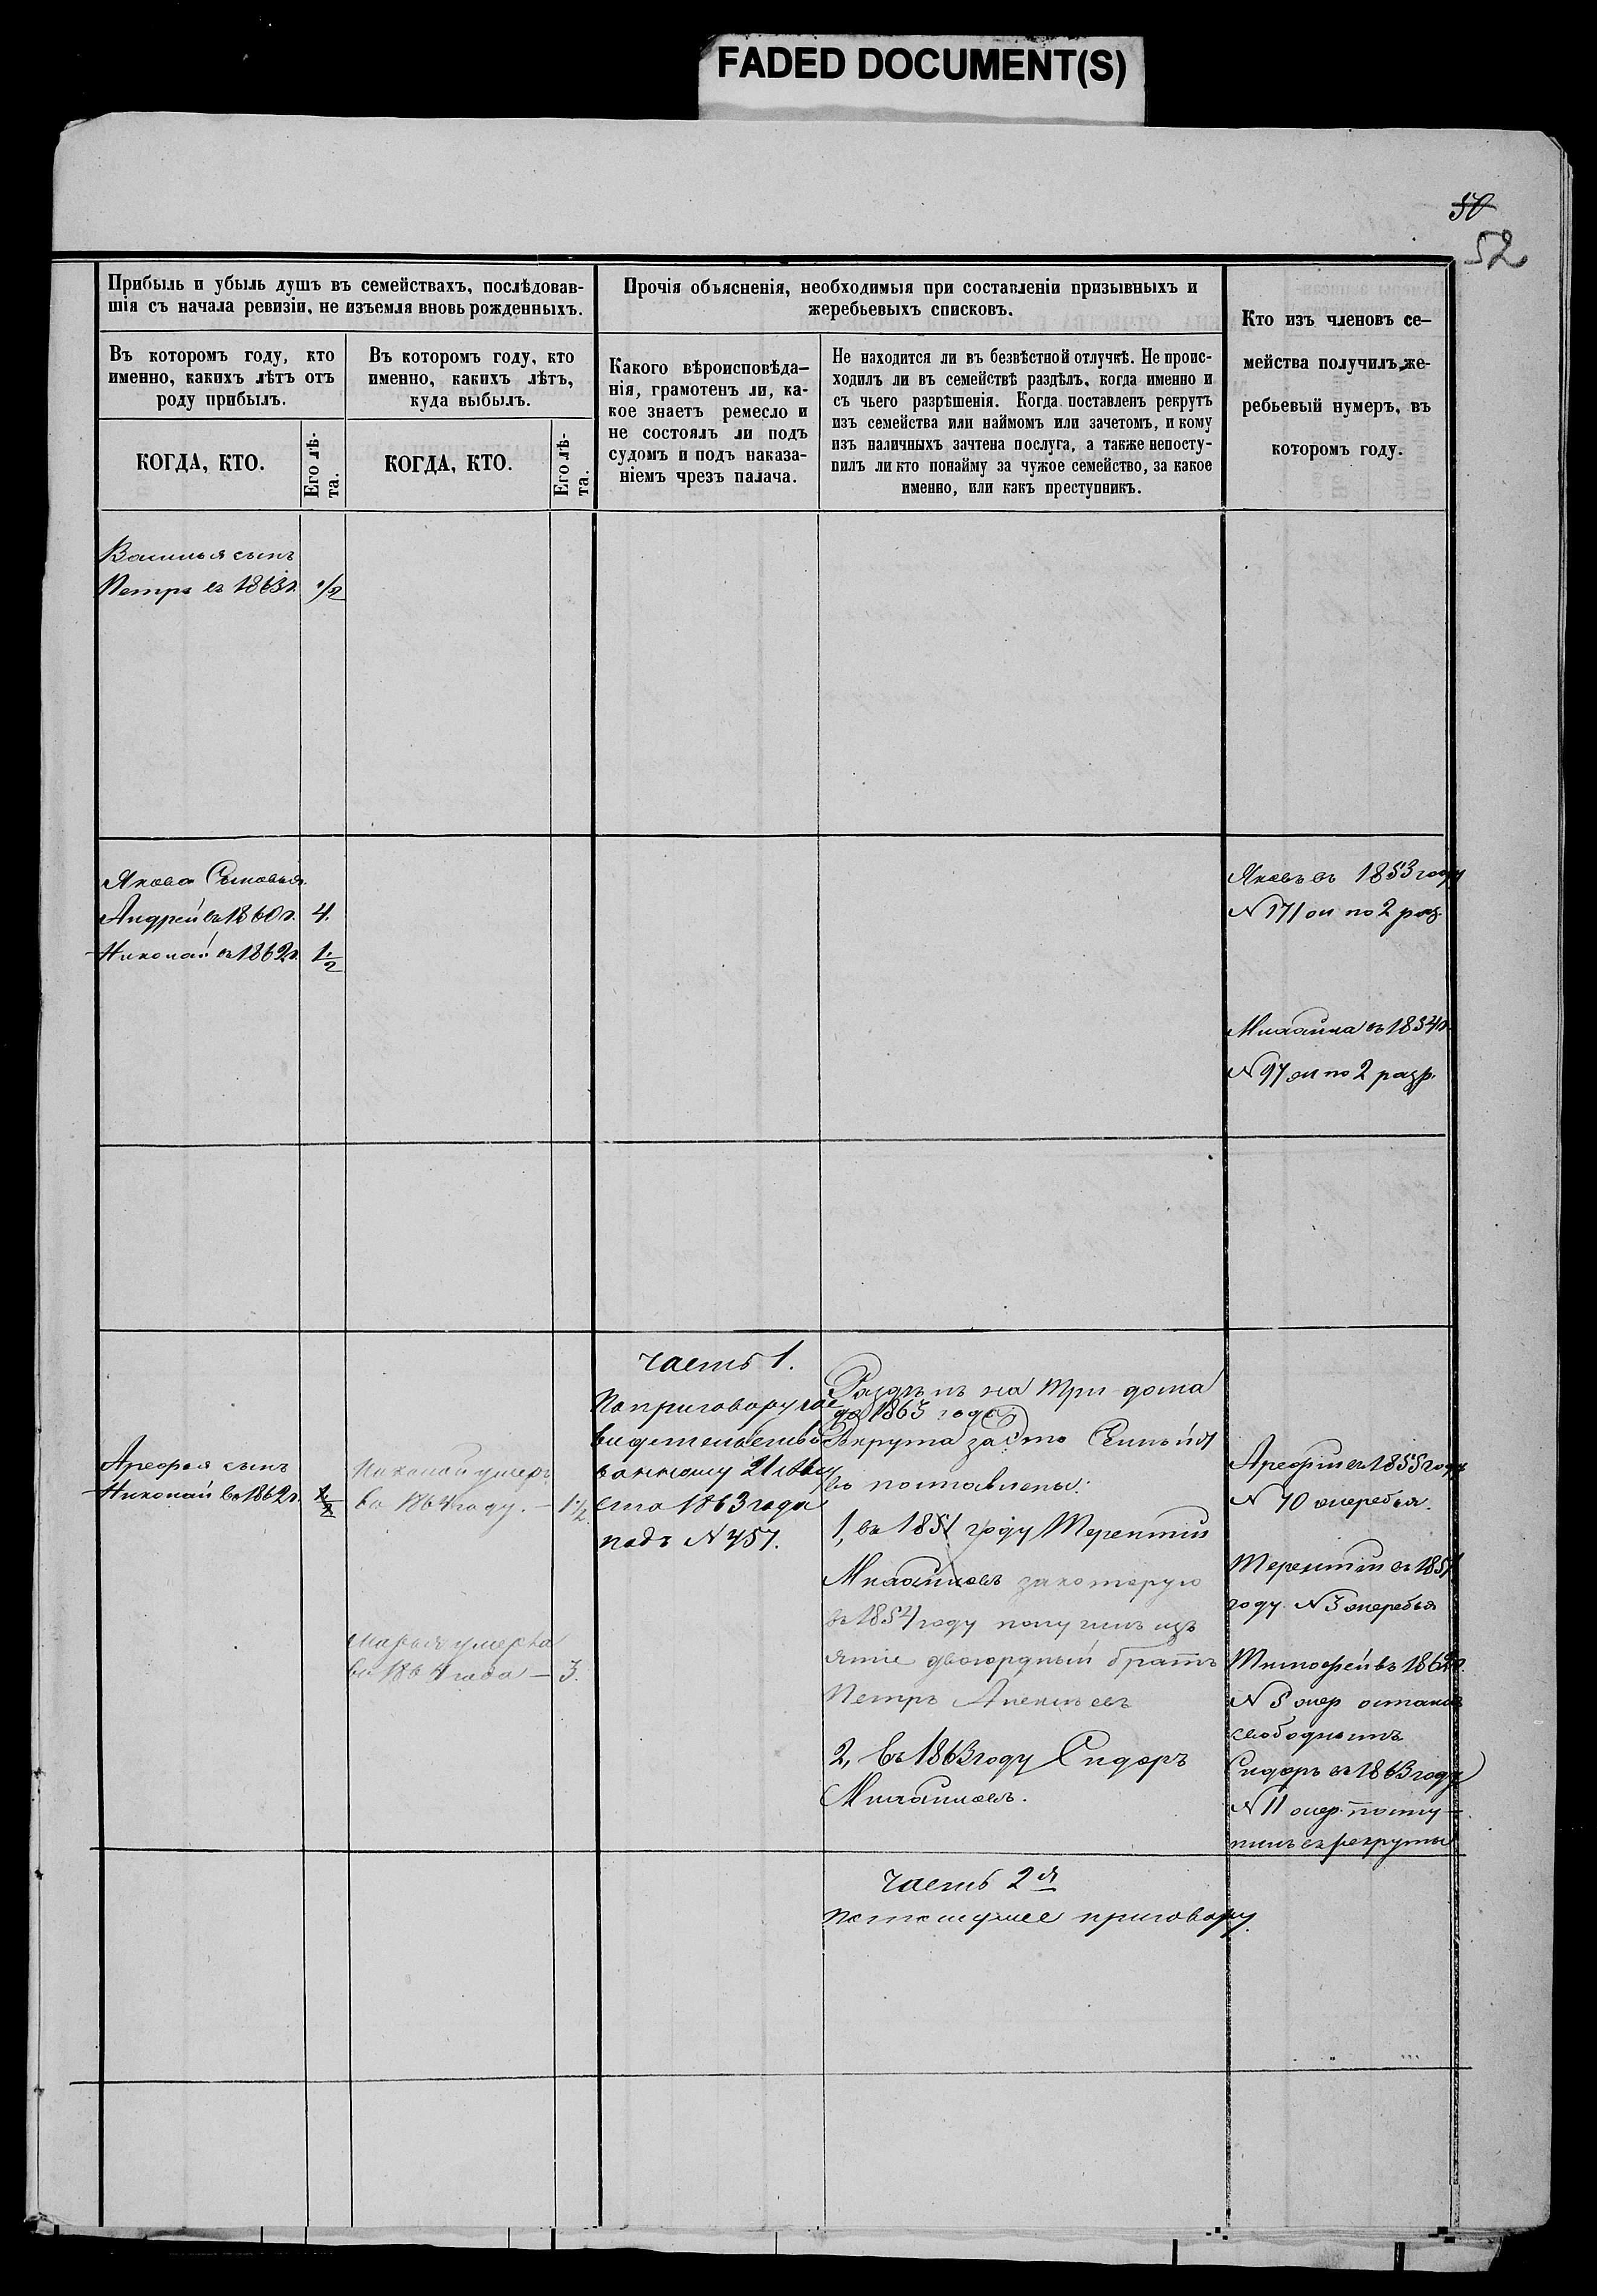 FADED DOCUMENT(S)
50
52
Прибыль и убыль душъ въ семействахъ, послѣдовав-
шія съ начала ревизіи, не изъемля вновь рожденныхъ.
Въ которомъ году, кто
именно, какихъ лѣтъ отъ
роду прибылъ.
КОГДА, КТО.
Его лѣ-
та.
Въ которомъ году, кто
именно, какихъ лѣтъ,
куда выбылъ.
КОГДА, КТО.
Его лѣ-
та.
Прочія объясненія, необходимыя при составленіи призывныхъ и
жеребьевыхъ списковъ.
Какого вѣроисповѣда-
нія, грамотенъ ли, ка-
кое знаетъ ремесло и
не состоялъ ли подъ
судомъ и подъ наказа-
ніемъ чрезъ палача.
Не находится ли въ безвѣстной отлучкѣ. Не проис-
ходилъ ли въ семействѣ раздѣлъ, когда именно и
съ чьего разрѣшенія. Когда поставленъ рекрутъ
изъ семейства или наймомъ или зачетомъ, и кому
изъ наличныхъ зачтена послуга, а также непосту-
пилъ ли кто понайму за чужое семейство, за какое
именно, или какъ преступникъ.
Кто изъ членовъ се-
мейства получилъ же-
ребьевый нумеръ, въ
которомъ году.
Василья сынъ
Петръ въ 1863г. 1/2
Якова Сыновья.
Андрей въ 1860г. 4.
Николай въ 1862г. 1 1/2
Яковъ въ 1853 году
N 171 по 2 раз.
Михайла въ 1854г.
N 97 по 2 разр.
Арефья сынъ
Николай въ 1862г. 1/2
Николай умеръ
въ 1864 году. — 1 1/2.
Марья умерла
въ 1864 года — 3.
Часть 1.
По приговору сви
видетельство
ванному 21
ста 1863 года
подъ N 457.
Раздѣлъ на три дома
до 1863 года
Рекрута за это Семейст
во поставлены:
1, въ 1851 году Терентий
Михайловъ за которую
въ 1854 году получилъ изъ
ятіе двоюрдный братъ
Петръ Алексѣевъ
2, Въ 1863 году Сидоръ
Михайловъ.
Арефий въ 1855 году
N 70 жеребья.
Терентий въ 1851
году N 3 жеребья
Тимофей въ 1862г.
N 5 жер остался
свободнымъ
Сидоръ въ 1863 году
N 11 жер. посту-
пилъ въ рекруты
Часть 2я
По томуже приговору.